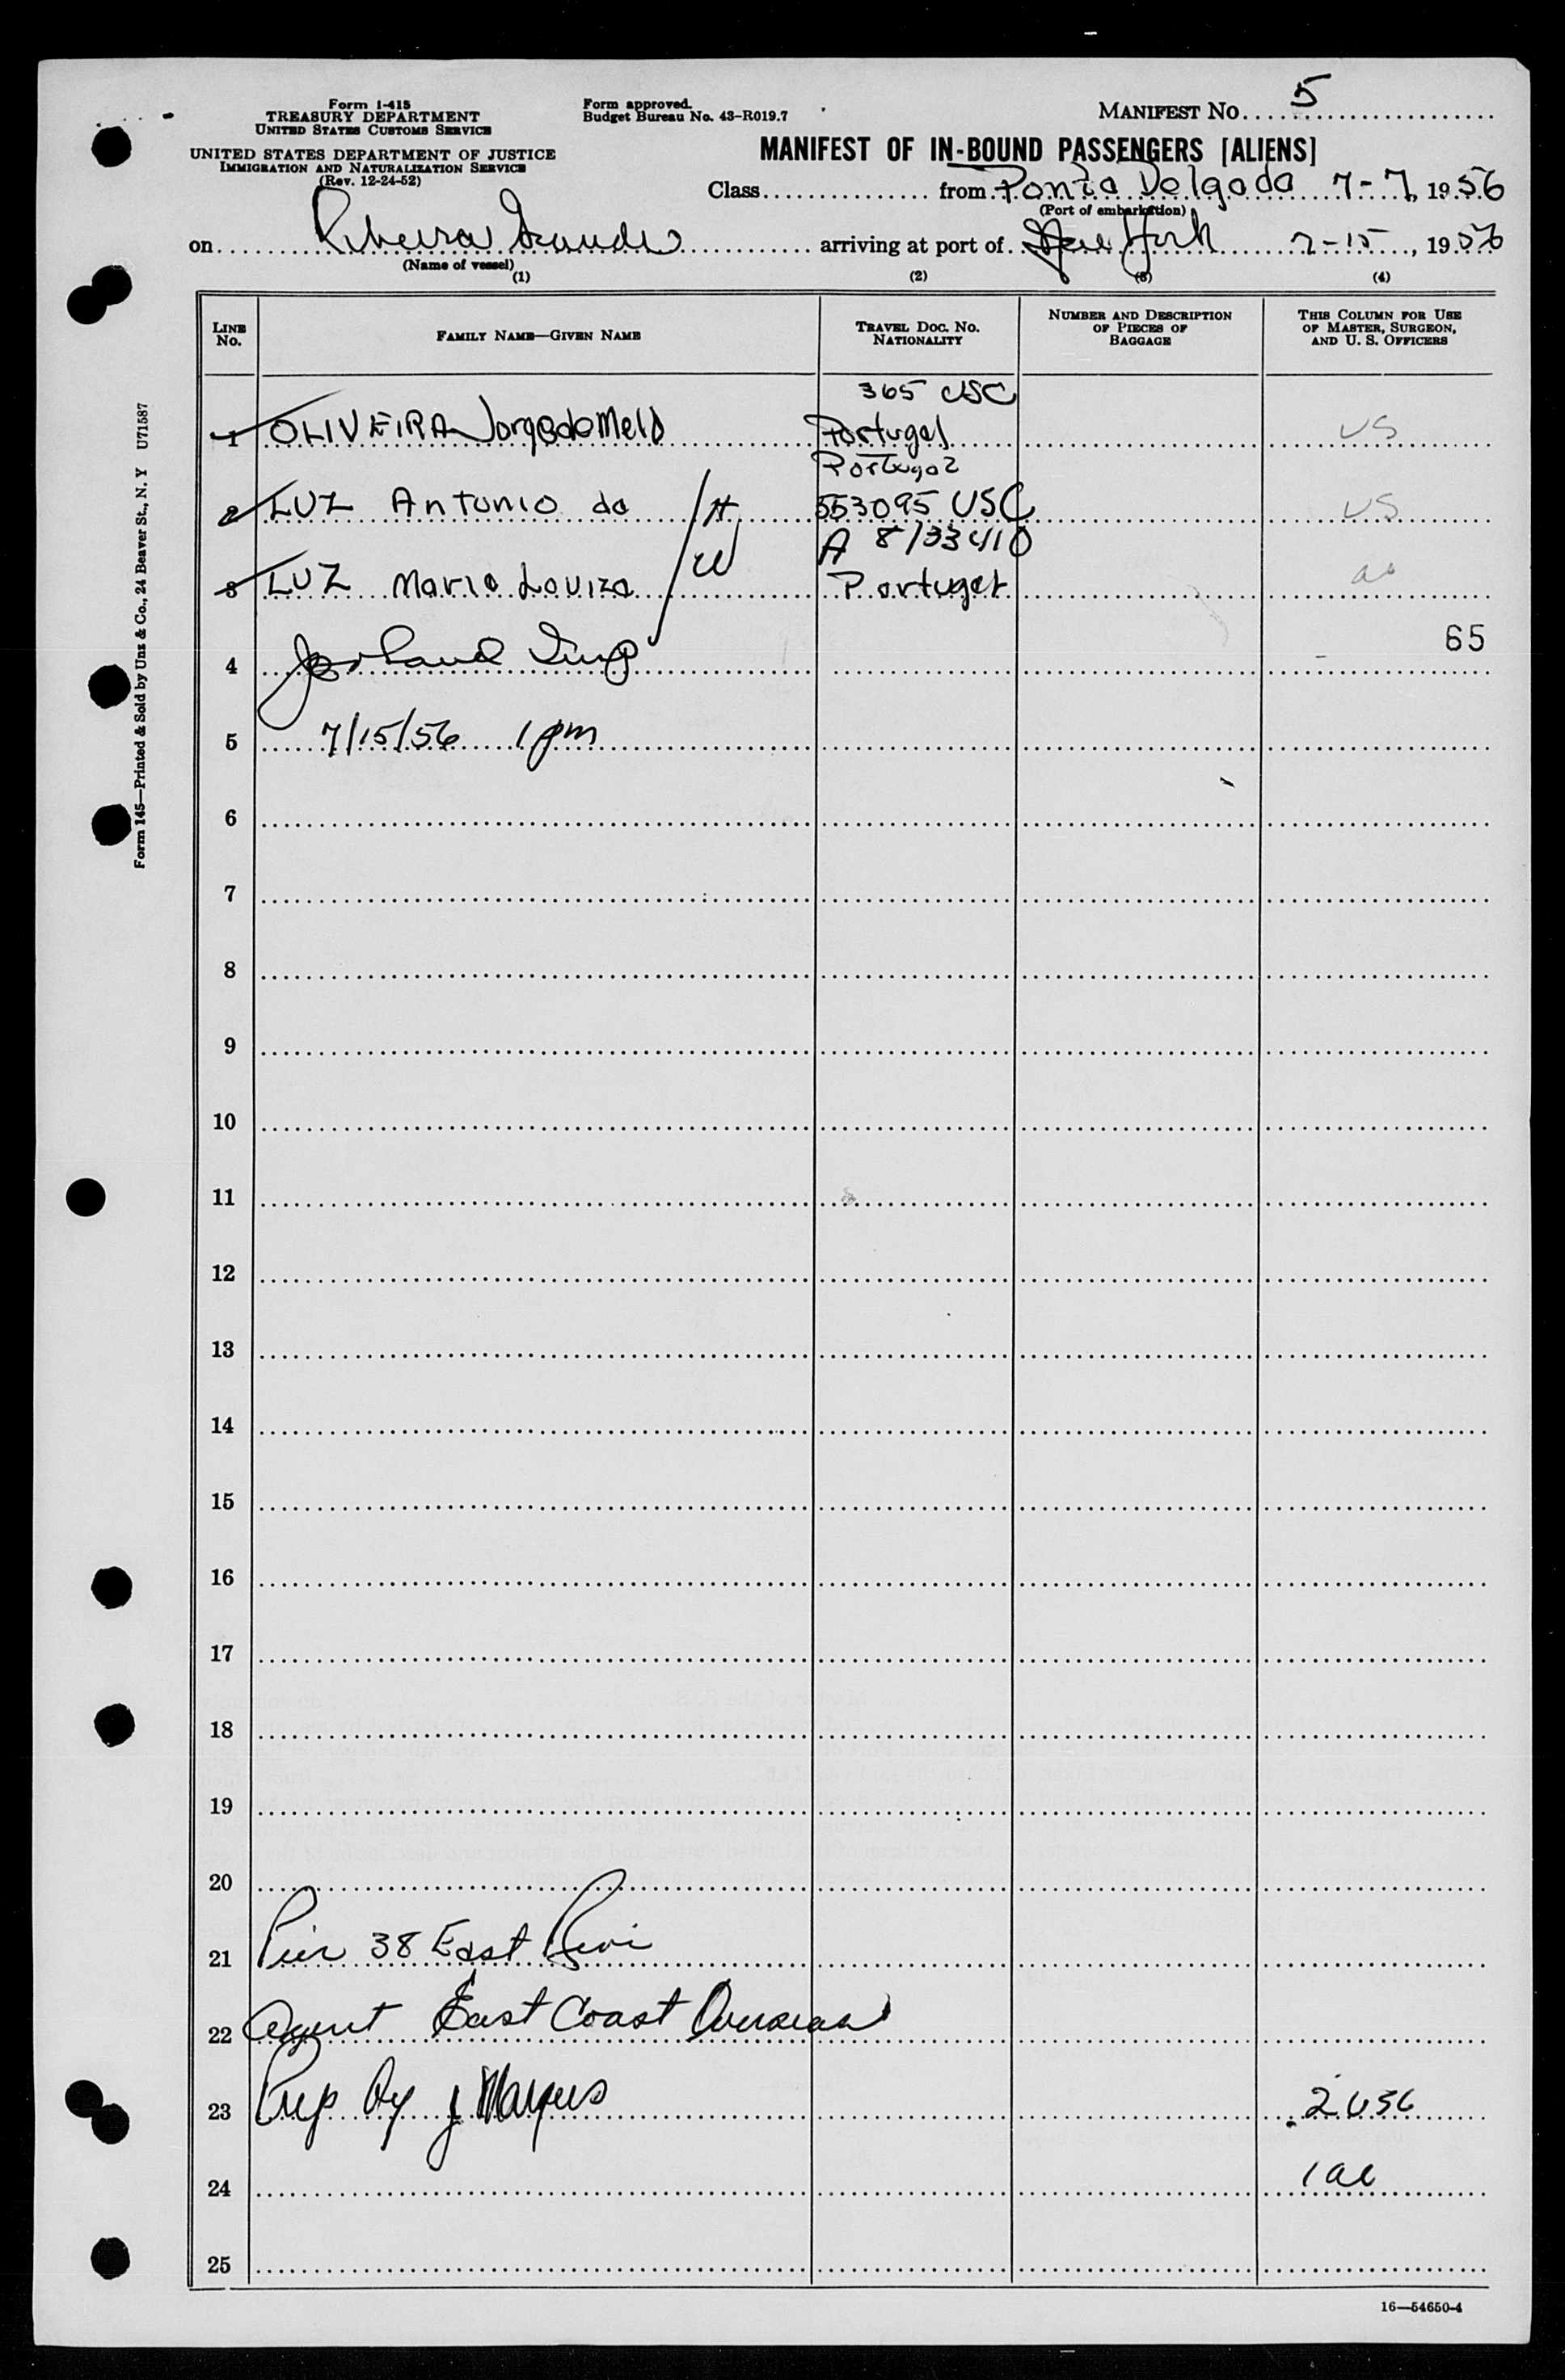 Form I-415
TREASURY DEPARTMENT
UNITED STATES CUSTOMS SERVICE
UNITED STATES DEPARTMENT OF JUSTICE
IMMIGRATION AND NATURALIZATION SERVICE
(Rev. 12-24-52)
Form approved.
Budget Bureau No. 43-R019.7
MANIFEST NO. 5
MANIFEST OF IN-BOUND PASSENGERS [ALIENS]
Class from Ponta Delgada 7-7, 1956
(Port of embarkation)
on Ribeira Grande arriving at port of New York 7-15, 1956
(Name of vessel)
(1) (2) (3) (4)
LINE NO. FAMILY NAME—GIVEN NAME TRAVEL DOC. NO. NATIONALITY NUMBER AND DESCRIPTION OF PIECES OF BAGGAGE THIS COLUMN FOR USE OF MASTER, SURGEON, AND U. S. OFFICERS
365 USC
1 OLIVEIRA Jorge de Melo Portugal US
Portugal
2 LUZ Antonio da H 553095 USC US
A 8133410
3 LUZ Maria Louiza W Portugal al
65
4
5 7/15/56 1 pm
6
7
8
9
10
11
12
13
14
15
16
17
18
19
20
21 Pier 38 East River
22 Agent East Coast Overseas
23 Prep by J 2 USC
24 1 al
25
16—54650-4
Form 145—Printed & Sold by Unz & Co., 24 Beaver St., N. Y U71587